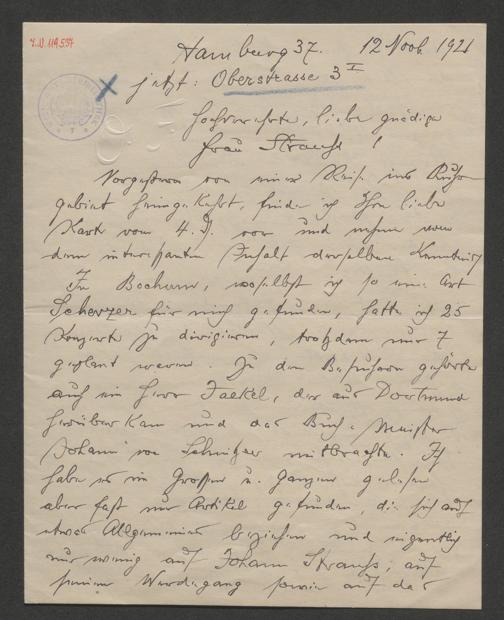 I.N. 119.557
Hamburg 37. 12 Nov. 1921
jetzt: Oberstrasse 3 I
Hochverehrte, liebe gnädige
Frau Strauss!
Vorgestern von einer Reise ins Ruhr
gebiet heimgekehrt, finde ich Ihre liebe
Karte vom 4. D. vor und nehme von
dem interessanten Inhalt derselben Kenntnis
In Bochum, woselbst ich so eine Art
Scherzer für mich gefunden, hatte ich 25
Konzerte zu dirigieren, trotzdem nur 7
geplant waren. Zu den Besuchern gehörte
auch ein Herr Jaekel, der aus Dortmund
herüber kam und das Buch: Meister
Johann von Schnitzer mitbrachte. Ich
habe es im Grossen u. Ganzen gelesen
aber fast nur Artikel gefunden, die sich auf
etwas Allgemeines beziehen und eigentlich
nur wenig auf Johann Strauss; auf
seinen Werdegang sowie auf das